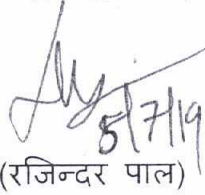 5/7/19
(रजिन्दर पाल)